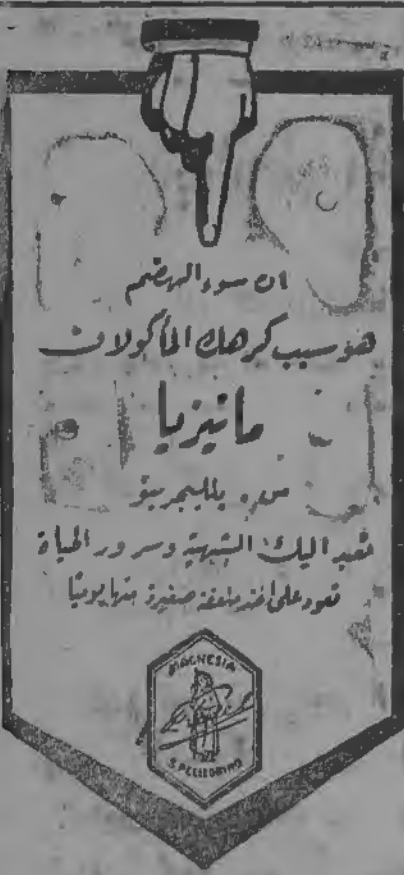 ان سوء الهضم
هو سبب كرهك المأكولات
مانيزيا
س. بلليجرينو
تعيد اليك الشهية وسرور الحياة
تعود على اخذ ملعقة صغيرة منها يوميا
MAGNESIA
S.PELLEGRINO